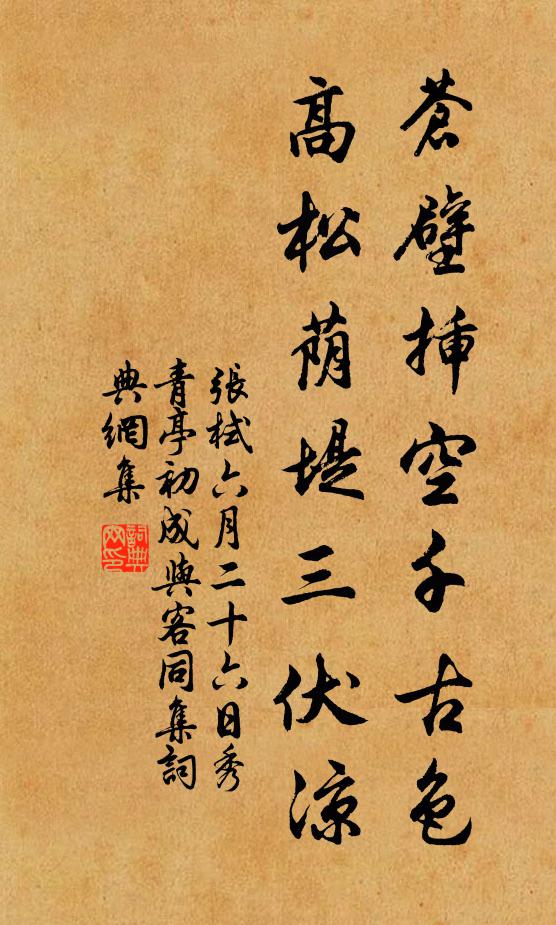 蒼壁插空千古色
高松蔭堤三伏涼
張栻六月二十六日秀
青亭初成與客同集詞
典網集
詞典
网印